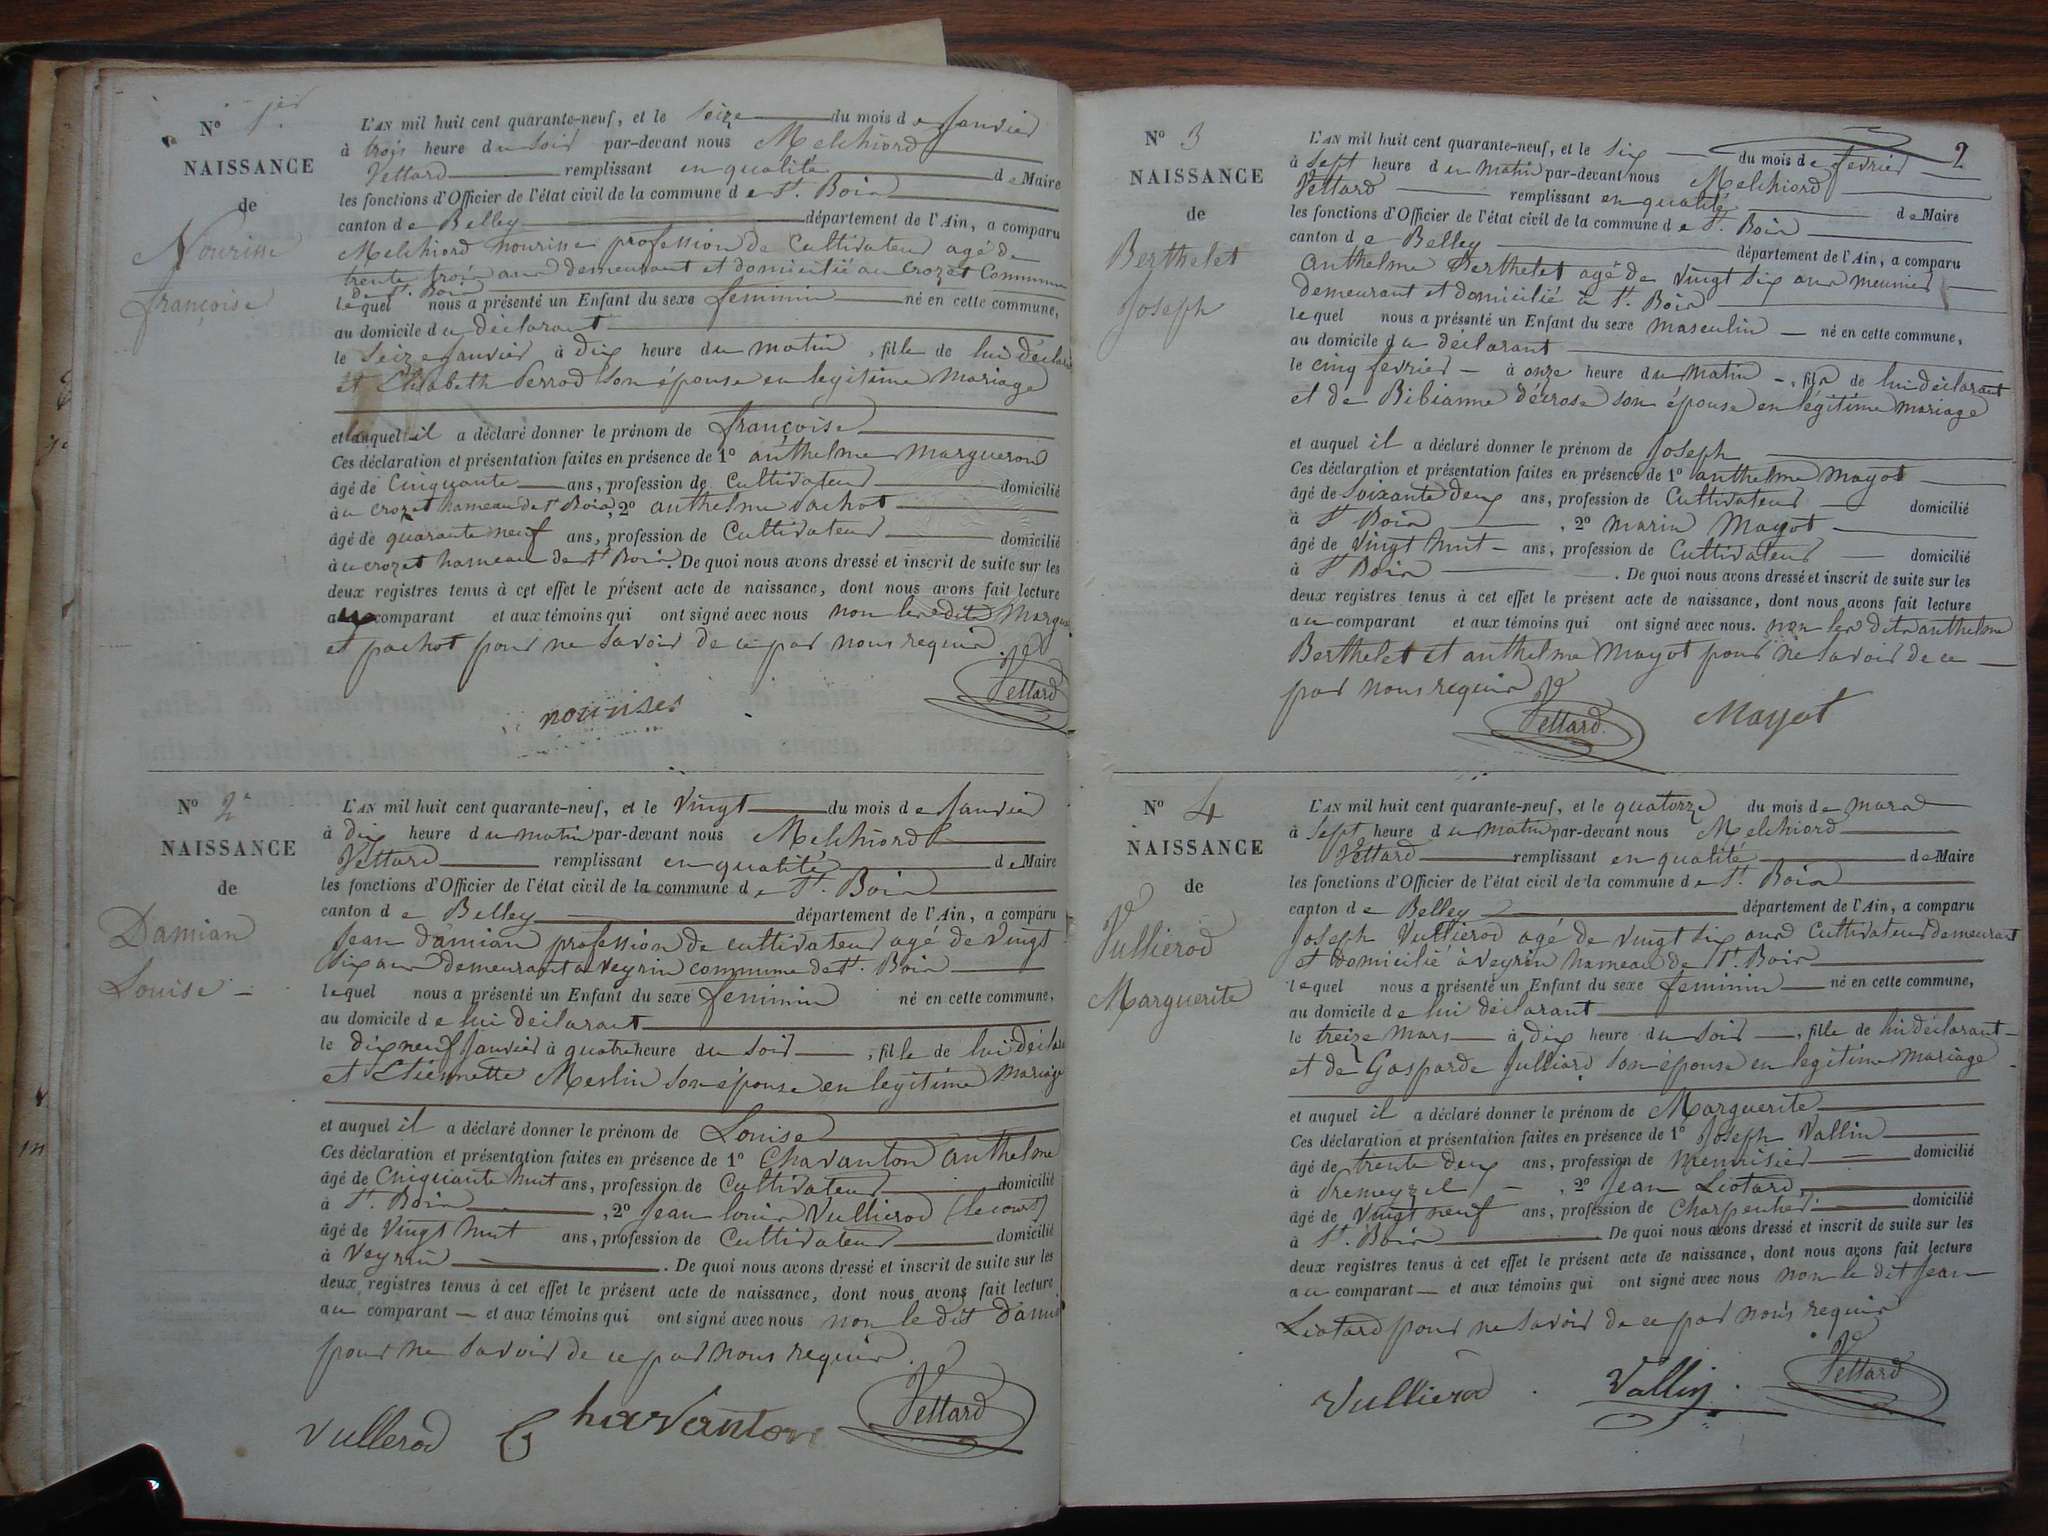 N° 1er
NAISSANCE
de
Nourisse
françoise
L'AN mil huit cent quarante-neuf, et le Seize du mois de Janvier
à trois heure du Soir par-devant nous Melchiord
Vettard remplissant en qualité de Maire
les fonctions d'Officier de l'état civil de la commune de St. Bois
canton de Belley département de l'Ain, a comparu
Melchiord nourisse profession de Cultivateur agé de
trente trois ans demeurant et domicilié au Crozet Commune
de St. Bois
lequel nous a présenté un Enfant du sexe feminin né en cette commune,
au domicile du déclarant
le Seize Janvier à dix heure du matin, fille de lui déclara
et Elisabeth Perrod son épouse en legitime Mariage
et auquel il a déclaré donner le prénom de françoise
Ces déclaration et présentation faites en présence de 1° anthelme Margueron
âgé de Cinquante ans, profession de Cultivateur domicilié
à au crozet hameau de St Bois, 2° anthelme pachot
âgé de quarante neuf ans, profession de Cultivateur domicilié
à au crozet hameau de St Bois. De quoi nous avons dressé et inscrit de suite sur les
deux registres tenus à cet effet le présent acte de naissance, dont nous avons fait lecture
au comparant et aux témoins qui ont signé avec nous non les dits Margu
et pachot pour ne savoir de ce par nous requis
nourisse Vettard
N° 2e
NAISSANCE
de
Damian
Louise
L'AN mil huit cent quarante-neuf, et le Vingt du mois de Janvier
à dix heure du matin par-devant nous Melchiord
Vettard remplissant en qualité de Maire
les fonctions d'Officier de l'état civil de la commune de St. Bois
canton de Belley département de l'Ain, a comparu
Jean damian profession de cultivateur agé de Vingt
six ans demeurant a Veyrin commune de St. Bois
lequel nous a présenté un Enfant du sexe feminin né en cette commune,
au domicile de lui déclarant
le dix neuf Janvier à quatre heure du Soir, fille de lui décla
et Etiennette Merlin son épouse en legitime Mariage
et auquel il a déclaré donner le prénom de Louise
Ces déclaration et présentation faites en présence de 1° Chavanton anthelme
âgé de Cinquante huit ans, profession de Cultivateur domicilié
à St. Bois, 2° Jean louis Vullierod (lecourt)
âgé de Vingt huit ans, profession de Cultivateur domicilié
à Veyrin. De quoi nous avons dressé et inscrit de suite sur les
deux registres tenus à cet effet le présent acte de naissance, dont nous avons fait lecture
au comparant et aux témoins qui ont signé avec nous non le dit Dami
pour ne savoir de ce par nous requis.
Vullerod Chavanton Vettard
2
N° 3
NAISSANCE
de
Berthelet
Joseph
L'AN mil huit cent quarante-neuf, et le six du mois de fevrier
à Sept heure du matin par-devant nous Melchiord
Vettard remplissant en qualité de Maire
les fonctions d'Officier de l'état civil de la commune de St. Bois
canton de Belley département de l'Ain, a comparu
anthelme Berthelet agé de Vingt six ans meunier
demeurant et domicilié à St. Bois
lequel nous a présenté un Enfant du sexe masculin né en cette commune,
au domicile du déclarant
le cinq fevrier à onze heure du matin, fils de lui déclarant
et de Bibianne décrose son épouse en légitime mariage
et auquel il a déclaré donner le prénom de Joseph
Ces déclaration et présentation faites en présence de 1° anthelme Mayot
âgé de Soixante deux ans, profession de Cultivateur domicilié
à St Bois, 2° marin Mayot
âgé de Vingt huit ans, profession de Cultivateur domicilié
à St Bois. De quoi nous avons dressé et inscrit de suite sur les
deux registres tenus à cet effet le présent acte de naissance, dont nous avons fait lecture
au comparant et aux témoins qui ont signé avec nous. non les dits anthelme
Berthelet et anthelme Mayot pour ne savoir de ce
par nous requis
Vettard Mayot
N° 4
NAISSANCE
de
Vullierod
Marguerite
L'AN mil huit cent quarante-neuf, et le quatorze du mois de mars
à Sept heure du Matin par-devant nous Melchiord
Vettard remplissant en qualité de Maire
les fonctions d'Officier de l'état civil de la commune de St. Bois
canton de Belley département de l'Ain, a comparu
Joseph Vullierod agé de Vingt six ans Cultivateur demeurant
et domicilié à Veyrin hameau de St. Bois
lequel nous a présenté un Enfant du sexe feminin né en cette commune,
au domicile de lui déclarant
le treize Mars à dix heure du Soir, fille de lui déclarant
et de Gasparde Julliard son épouse en legitime Mariage
et auquel il a déclaré donner le prénom de Marguerite
Ces déclaration et présentation faites en présence de 1° Joseph Vallin
âgé de trente deux ans, profession de menuisier domicilié
à Premeyzel, 2° Jean Liotard
âgé de Vingt neuf ans, profession de Charpentier domicilié
à St. Bois De quoi nous avons dressé et inscrit de suite sur les
deux registres tenus à cet effet le présent acte de naissance, dont nous avons fait lecture
au comparant et aux témoins qui ont signé avec nous non le dit Jean
Liotard pour ne savoir de ce par nous requis
Vullierod Vallin Vettard